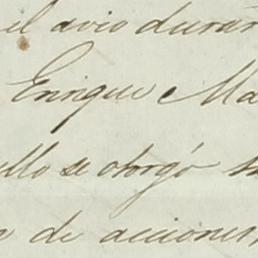 el avio duran
Enrique Ma
ello se otorgó
de acciones